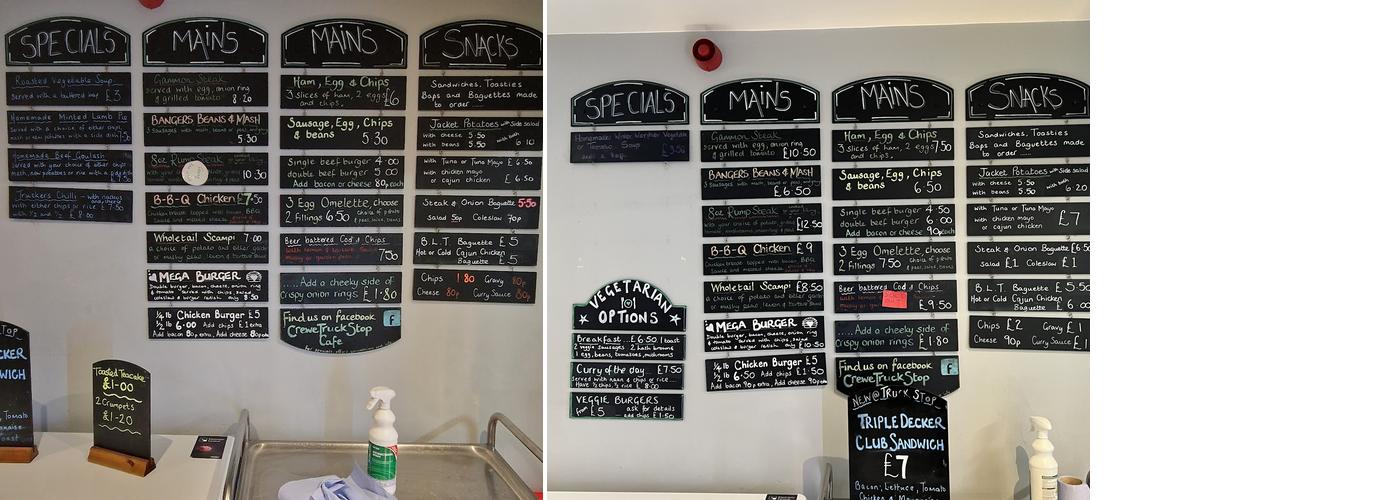 SPECIALS
Roasted Vegetable Soup
served with a buttered bap £3
Homemade Minted Lamb Pie
Served with a choice of either chips,
mash or new potatoes with a side dish
Homemade Beef Goulash
served with your choice of either chips
mash, new potatoes or rice
Truckers Chilli - with nachos
with either chips or rice £7.50
with 1/2 and 1/2 £8.00
MAINS
Gammon Steak
served with egg, onion ring
& grilled tomato 8.20
BANGERS BEANS & MASH
3 sausages with mash, beans or peas and gravy
5.30
8oz Rump Steak
10.30
B-B-Q Chicken £7.50
Chicken breast topped with bacon, BBQ
sauce and melted cheese
Wholetail Scampi 7.00
a choice of potato and either garden
or mushy peas, lemon & tartare sauce
MEGA BURGER
Double burger, bacon, cheese, onion ring
& tomato served with chips, salad,
coleslaw & burger relish only 8.50
1/4 lb Chicken Burger £5
1/2 lb 6.00 Add chips £1 extra
Add bacon 80p extra, Add cheese 80p extra
MAINS
Ham, Egg & Chips
3 slices of ham, 2 eggs £6
and chips.
Sausage, Egg, Chips
& beans 5.30
Single beef burger 4.00
double beef burger 5.00
Add bacon or cheese 80p each
3 Egg Omelette, choose
2 Fillings 6.50 choice of potato
& peas, salad, beans
Beer battered Cod & Chips
7.50
....Add a cheeky side of
crispy onion rings £1.80
Find us on facebook
CreweTruckStop
Cafe
f
SNACKS
Sandwiches, Toasties
Baps and Baguettes made
to order ....
Jacket Potatoes with Side salad
with cheese 5.50
with beans 5.50 with both 6.10
with Tuna or Tuna Mayo £6.50
with chicken mayo
or cajun chicken £6.50
Steak & Onion Baguette 5.50
Salad 50p Coleslaw 70p
B.L.T. Baguette £5
Hot or Cold Cajun Chicken
Baguette £5
Chips 1.80 Gravy 80p
Cheese 80p Curry Sauce 80p
Toasted Teacake
£1-00
2 Crumpets
£1-20
SPECIALS
Homemade Winter Warmer Vegetable
or Tomato Soup
£3.50
VEGETARIAN
OPTIONS
Breakfast...£6.50 1 toast
2 veggie sausages 2 hash browns
1 egg, beans, tomatoes, mushrooms
Curry of the day... £7.50
Served with naan & chips or rice...
Have 1/2 chips, 1/2 rice £8.00
VEGGIE BURGERS
from £5 ask for details
add chips £1.50
MAINS
Gammon Steak
served with egg, onion ring
& grilled tomato £10.50
BANGERS BEANS & MASH
£6.50
8oz Rump Steak
£12.50
B-B-Q Chicken £9
Chicken breast topped with bacon, BBQ
Sauce and melted cheese
Wholetail Scampi £8.50
a choice of potato and either garden
or mushy peas, lemon & tartare sauce
MEGA BURGER
Double burger, bacon, cheese, onion ring
& tomato served with chips, salad,
coleslaw & burger relish only £10.50
1/4 lb Chicken Burger £5
1/2 lb 6.50 Add chips £1.50
Add bacon 90p extra, Add cheese 90p extra
MAINS
Ham, Egg & Chips
3 slices of ham, 2 eggs 7.50
and chips.
Sausage, Egg, Chips
& beans 6.50
Single beef burger 4.50
double beef burger 6.00
Add bacon or cheese 90p each
3 Egg Omelette, choose
2 Fillings 7.50 choice of potato
& peas, salad, beans
Beer battered Cod & Chips
£9.50
....Add a cheeky side of
crispy onion rings £1.80
Find us on facebook
CreweTruckStop
f
NEW @ TRUCK STOP
TRIPLE DECKER
CLUB SANDWICH
£7
Bacon, Lettuce, Tomato
SNACKS
Sandwiches, Toasties
Baps and Baguettes made
to order ....
Jacket Potatoes with Side salad
with cheese 5.50
with beans 5.50 with both 6.20
with Tuna or Tuna Mayo
with chicken mayo £7
or cajun chicken
Steak & Onion Baguette £6.50
Salad £1 Coleslaw £1
B.L.T. Baguette £5.50
Hot or Cold Cajun Chicken
Baguette £6.00
Chips £2 Gravy £1
Cheese 90p Curry Sauce £1